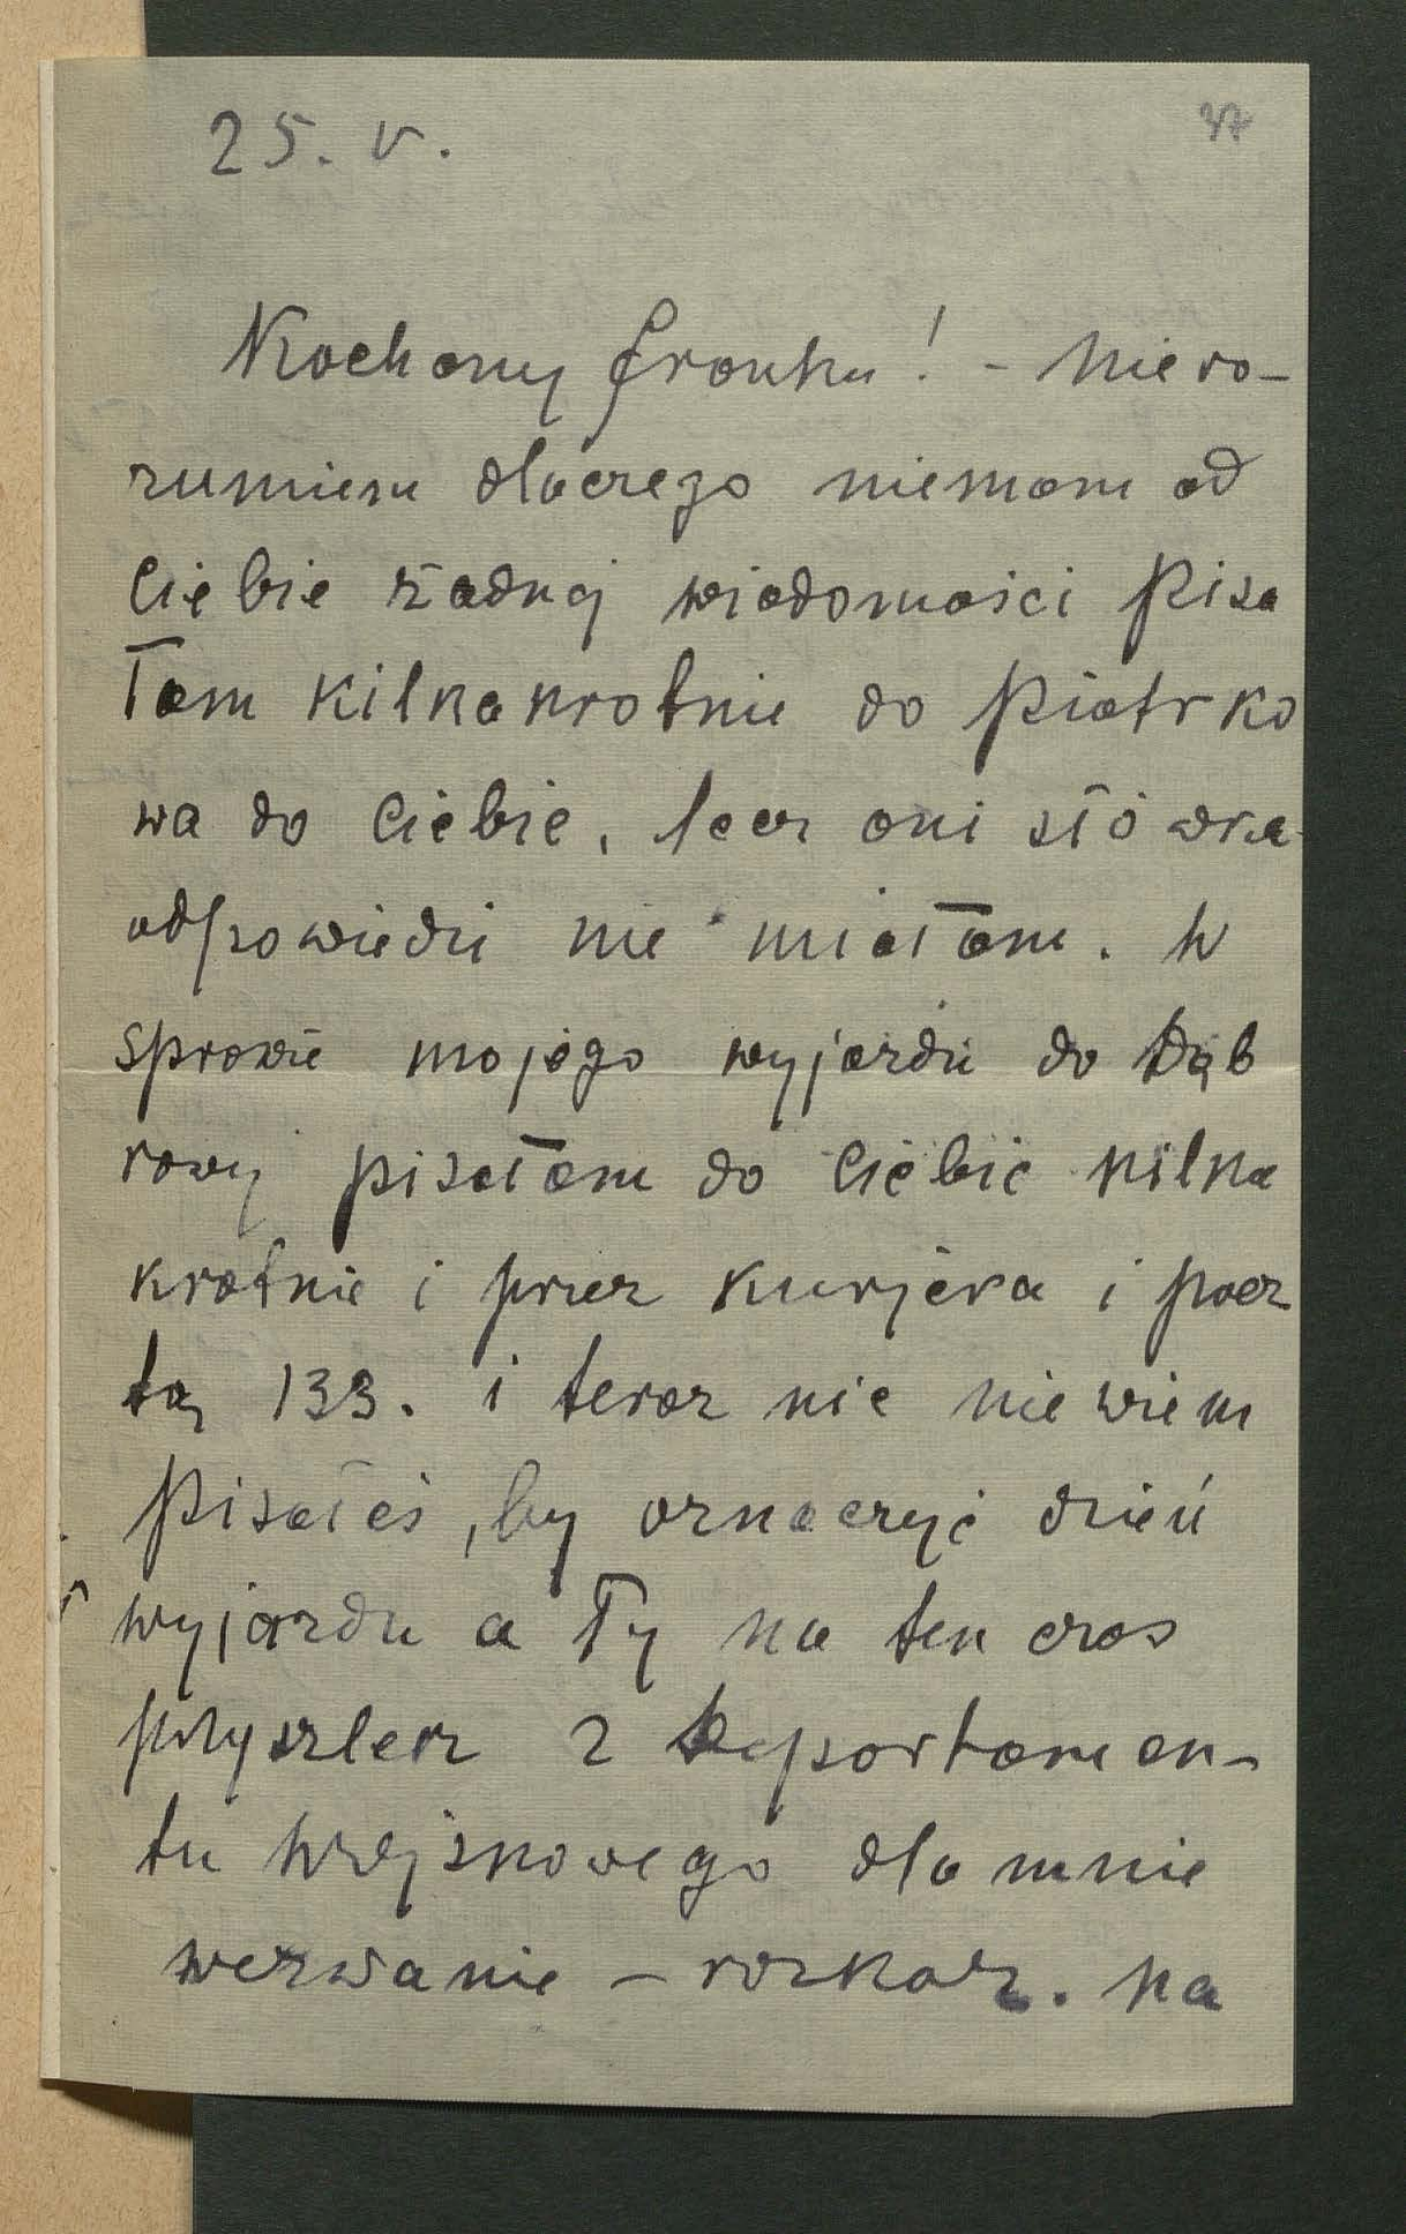 25. V.
37
Kochany Franku! - Niero-
zumiem dlaczego niemam od
Ciebie żadnej wiadomości Pisa
łam kilkakrotnie do Piotrko
wa do Ciebie, lecz ani słówka
odpowiedzi nie miałam. W
sprawie mojego wyjazdu do Dąb
rowy pisałam do Ciebie kilka
krotnie i przez kurjera i pocz
tą 133. i teraz nic nie wiem
Pisałeś, by oznaczyć dzień
wyjazdu a Ty na ten czas
przyszlesz z Departamen-
tu Wojskowego dla mnie
wezwanie - rozkaz. Na